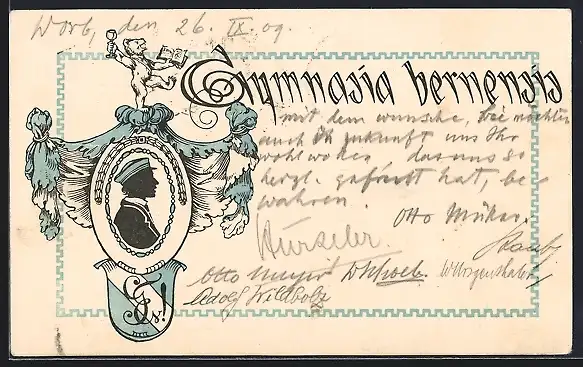 Worb, den 26. IX 09.
Gymnasia bernensis
mit dem wunsche, Sie möchten
auch in zukunft uns Ihr
wohlwollen, das uns so
herzl. gefreut hat, be
wahren.
Otto Müller.
Otto Meyer
W Morgenthaler
Adolf Wildbolz